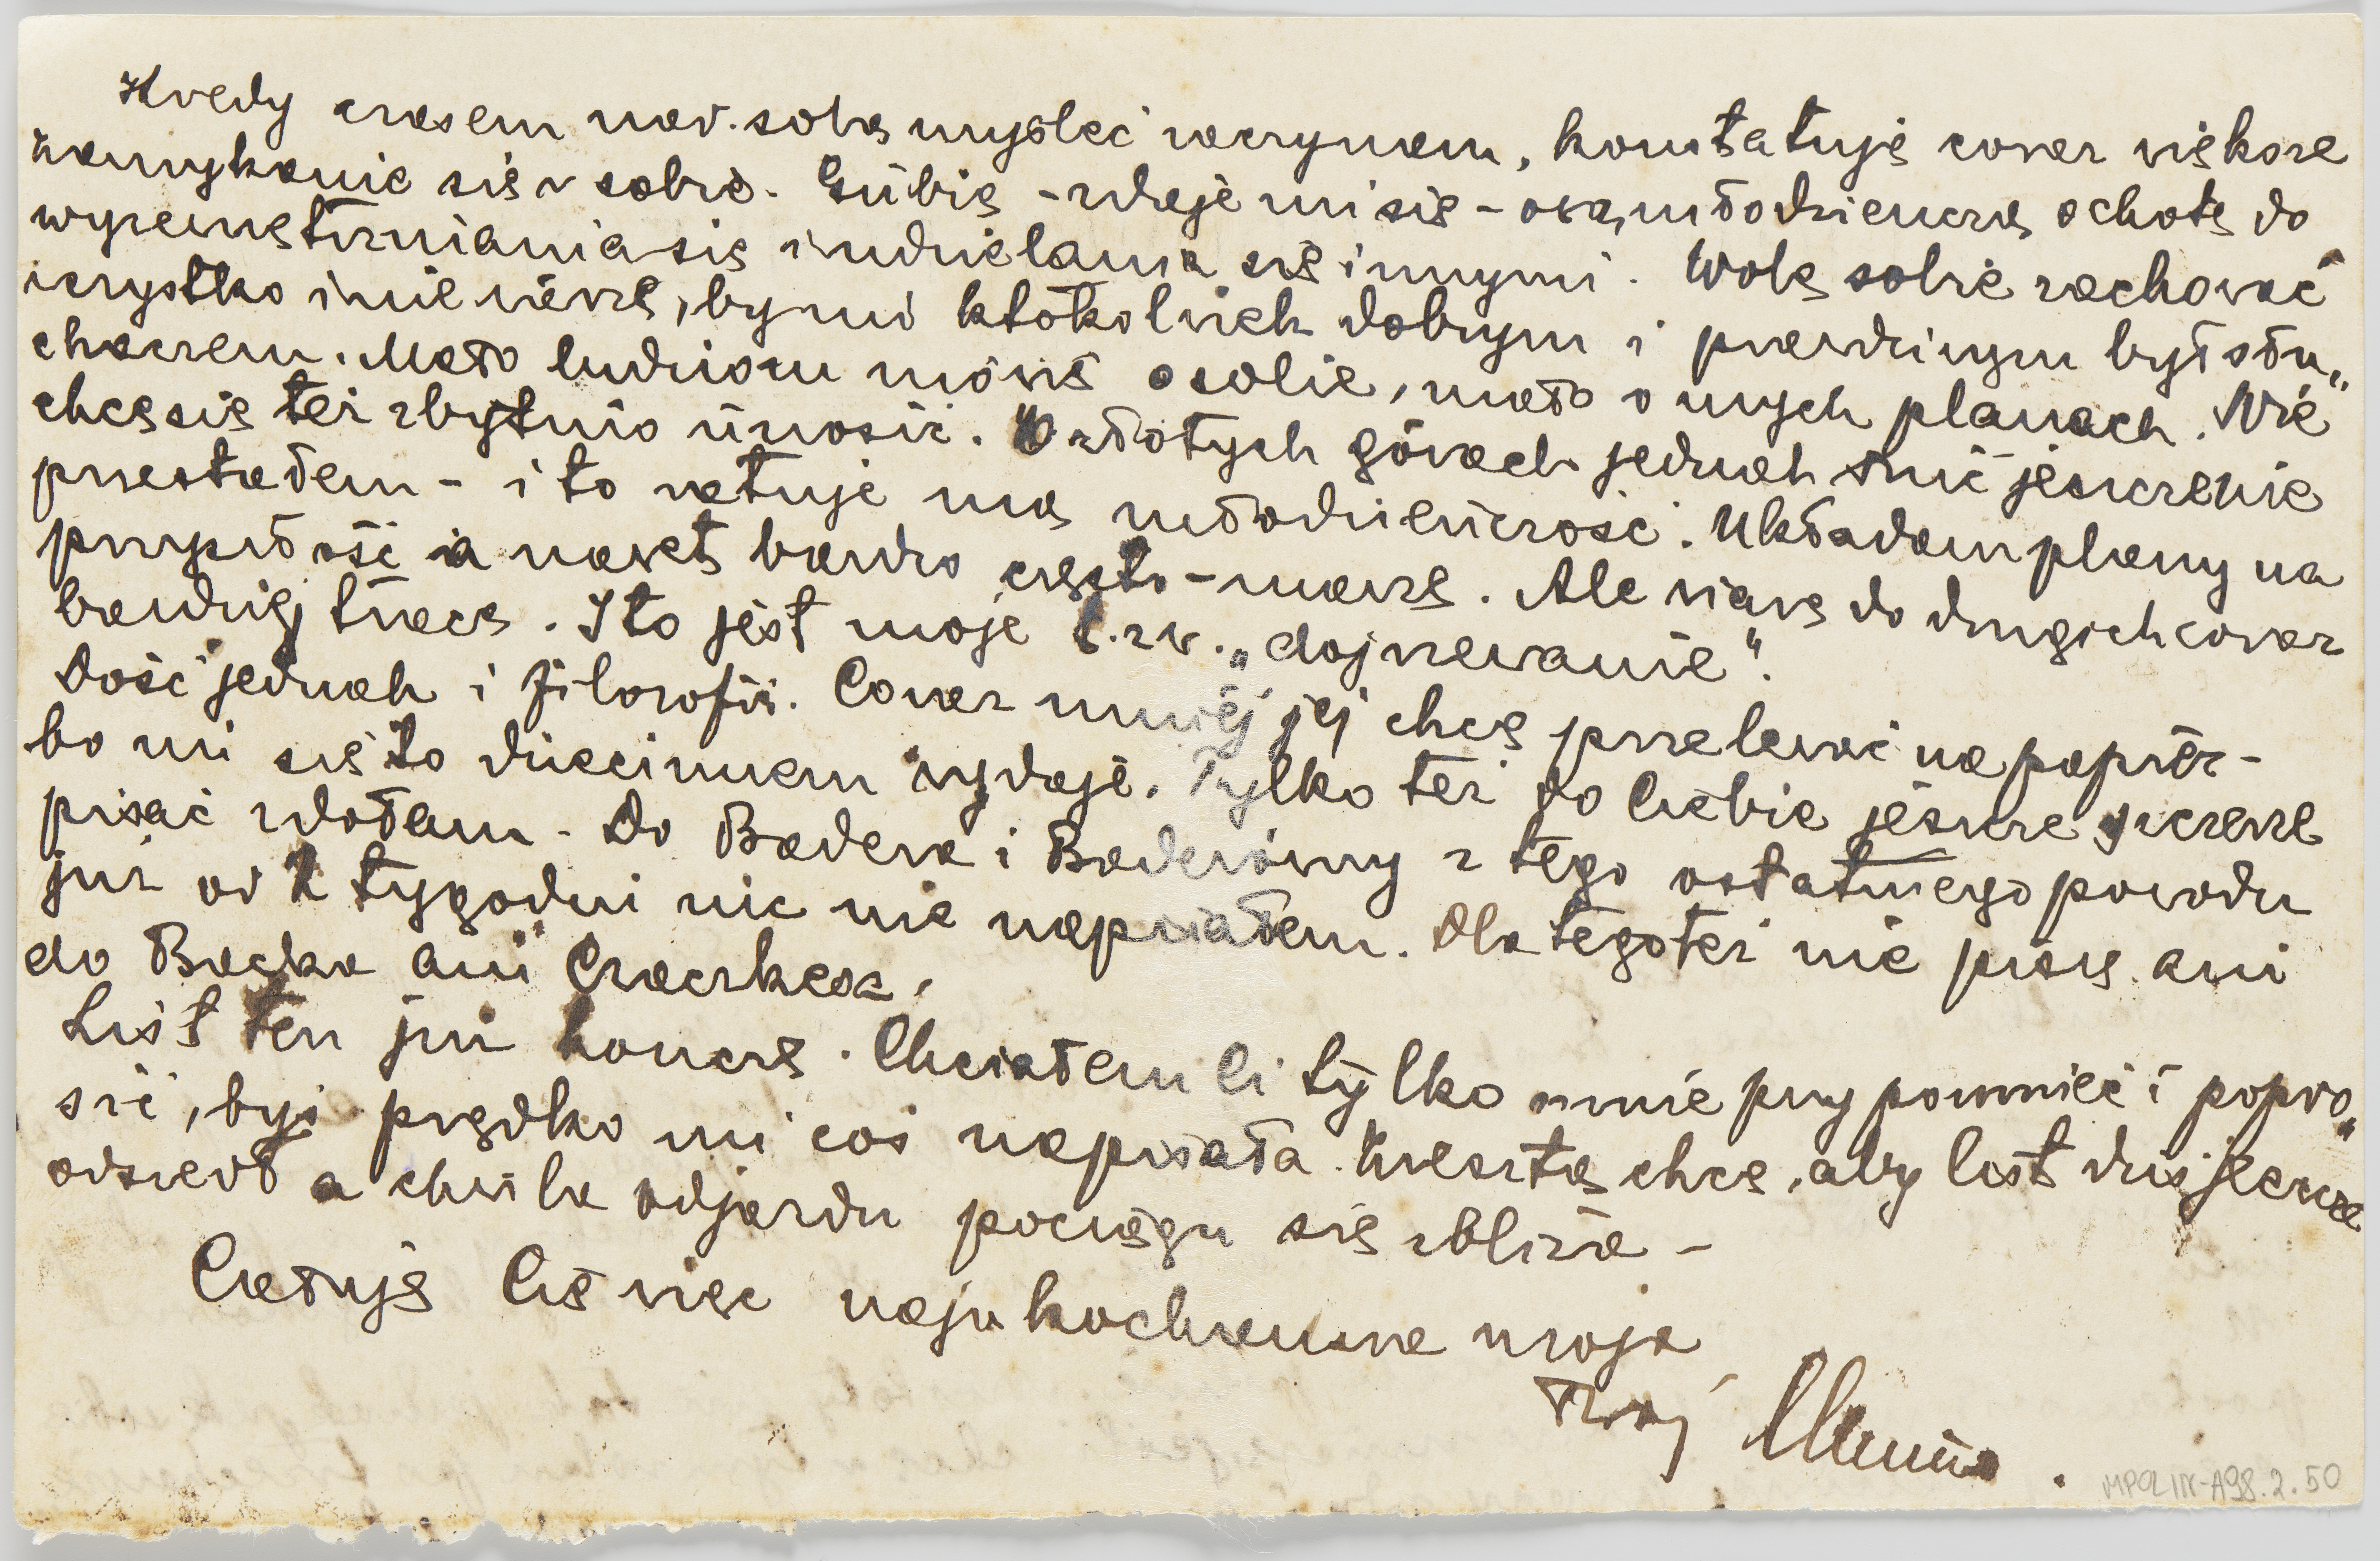 Kiedy czasem nad sobą myśleć zaczynam, konstatuję coraz większe
zamykanie się w sobie. Gubię – zdaje mi się – ową młodzieńczą ochotę do
wyzewnętrzniania się i udzielania się innymi. Wolę sobie zachować
wszystko i nie wierzę, by mi ktokolwiek dobrym i prawdziwym był słu„
chaczem. Mało ludziom mówię o sobie, mało o mych planach. Nie
chcę się też zbytnio unosić. O złotych górach jednak śnić jeszcze nie
przestałem – i to ratuje mą młodzieńczość. Układam plany na
przyszłość a nawet bardzo często – marzę. Ale wiarę do drugich coraz
bardziej tracę. I to jest moje t.zw. „dojrzewanie".
Dość jednak i filozofii. Coraz mniej jej chcę przelewać na papier –
bo mi się to dziecinnem wydaje. Tylko też do Ciebie jeszcze szczerze
pisać zdołam – Do Badera i Baderówny z tego ostatniego powodu
już od 2 tygodni nic nie napisałem. Dlatego też nie piszę ani
do Backa ani Czaczkesa.
List ten już kończę. Chciałem Ci tylko mnie przypomnieć i popro„
sić, byś prędko mi coś napisała. Zresztą chcę, aby list dziś jeszcze
odszedł a chwila odjazdu pociągu się zbliża –
Całuję Cię więc najukochańsza moja
Twój Munio.
MPOLIN-A98.2.50